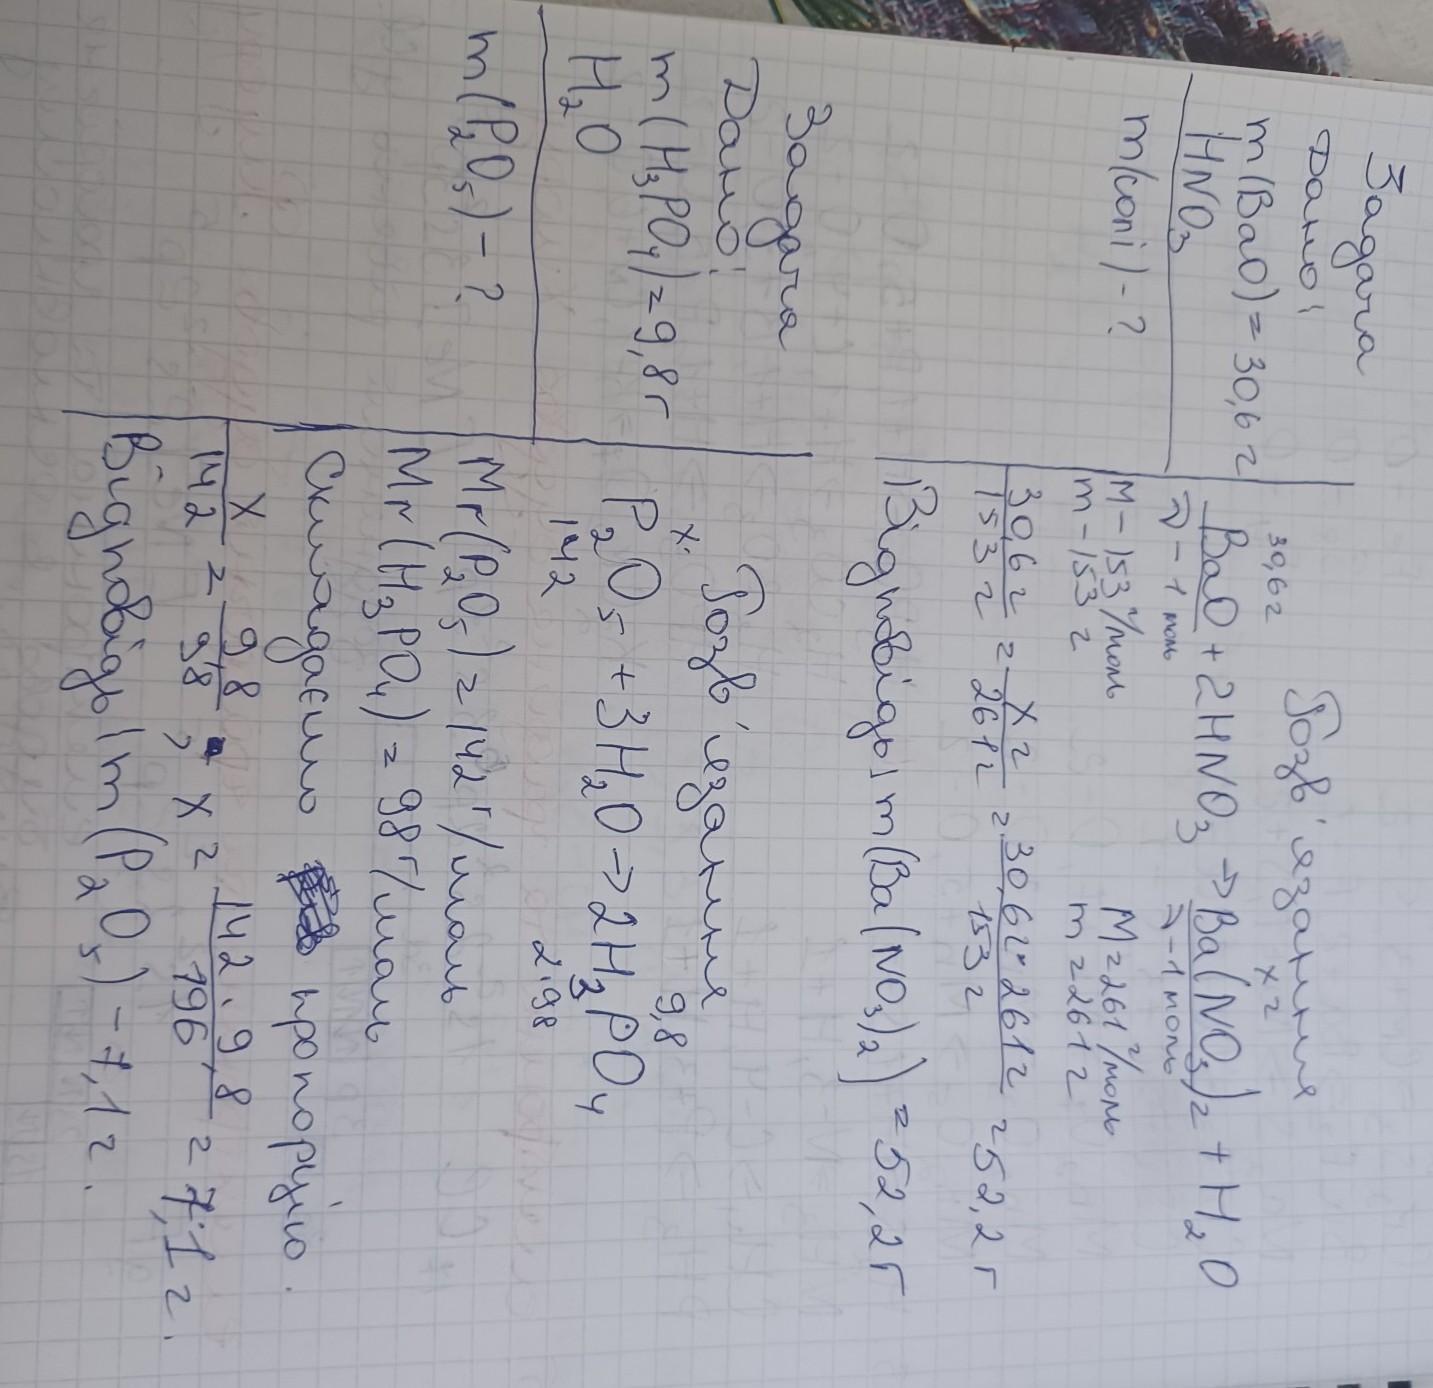 Задача
Дано:
m(BaO) = 30,6 г
HNO3
m(солі) - ?
Розв'язання
30,6г x г
BaO + 2HNO3 → Ba(NO3)2 + H2O
ν - 1 моль ν - 1 моль
M - 153 г/моль M = 261 г/моль
m - 153 г m = 261 г
30,6 г / 153 г = x г / 261 г = 30,6 г · 261 г / 153 г = 52,2 г
Відповідь: m(Ba(NO3)2) = 52,2 г
Задача
Дано:
m(H3PO4) = 9,8 г
H2O
m(P2O5) - ?
Розв'язання
x 9,8
P2O5 + 3H2O → 2H3PO4
142 2·98
Mr(P2O5) = 142 г/моль
Mr(H3PO4) = 98 г/моль
Складаємо пропорцію.
x / 142 = 9,8 / 98 ; x = 142 · 9,8 / 196 = 7,1 г.
Відповідь: m(P2O5) - 7,1 г.